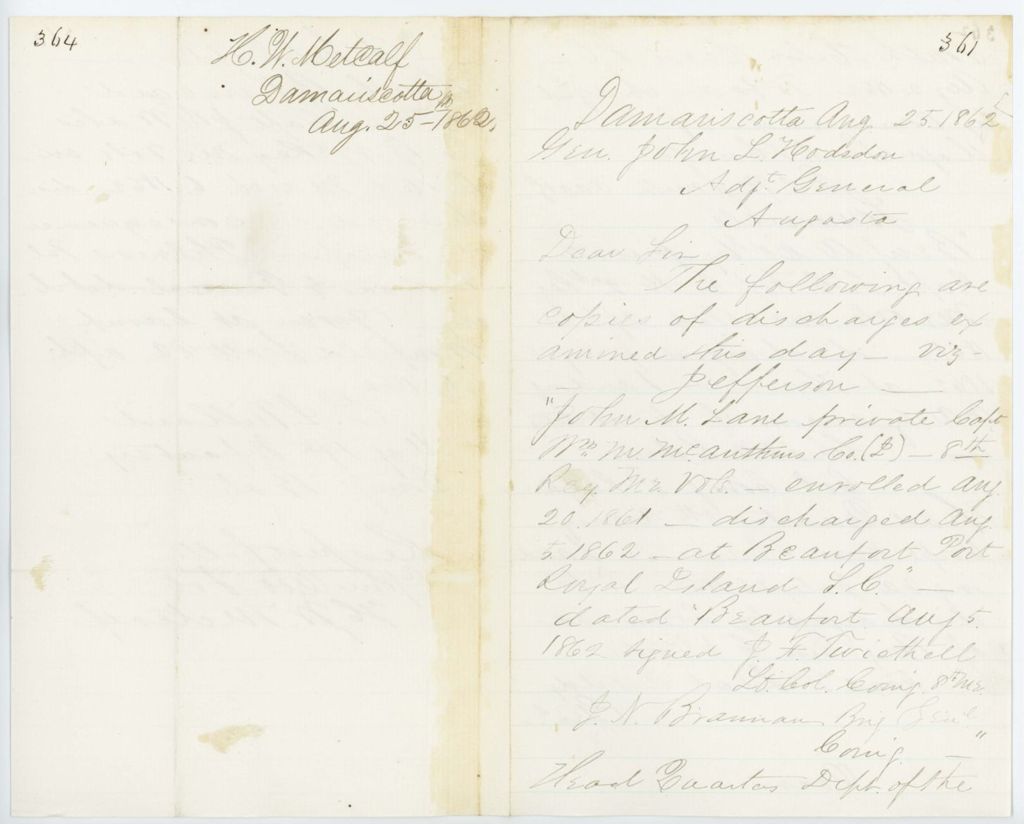 364
H. W. Metcalf
Damariscotta
Aug. 25th 1862.
361
Damariscotta Aug 25. 1862
Gen. John L. Hodsdon
Adjt. General
Augusta
Dear Sir
The following are
copies of discharges ex
amined this day — viz —
— Jefferson —
"John M. Lane private Capt
Wm. M. McArthurs Co. (I) — 8th
Reg. Me. Vols. — enrolled Aug
20. 1861 — discharged Aug.
5 1862 — at Beaufort Port
Royal Island S. C." —
dated "Beaufort Aug 5.
1862 signed J. F. Twichell
Lt. Col. Comg. 8th Me.
J. N. Brannan Brig Genl
Comg. "
Head Quarters Dept. of the